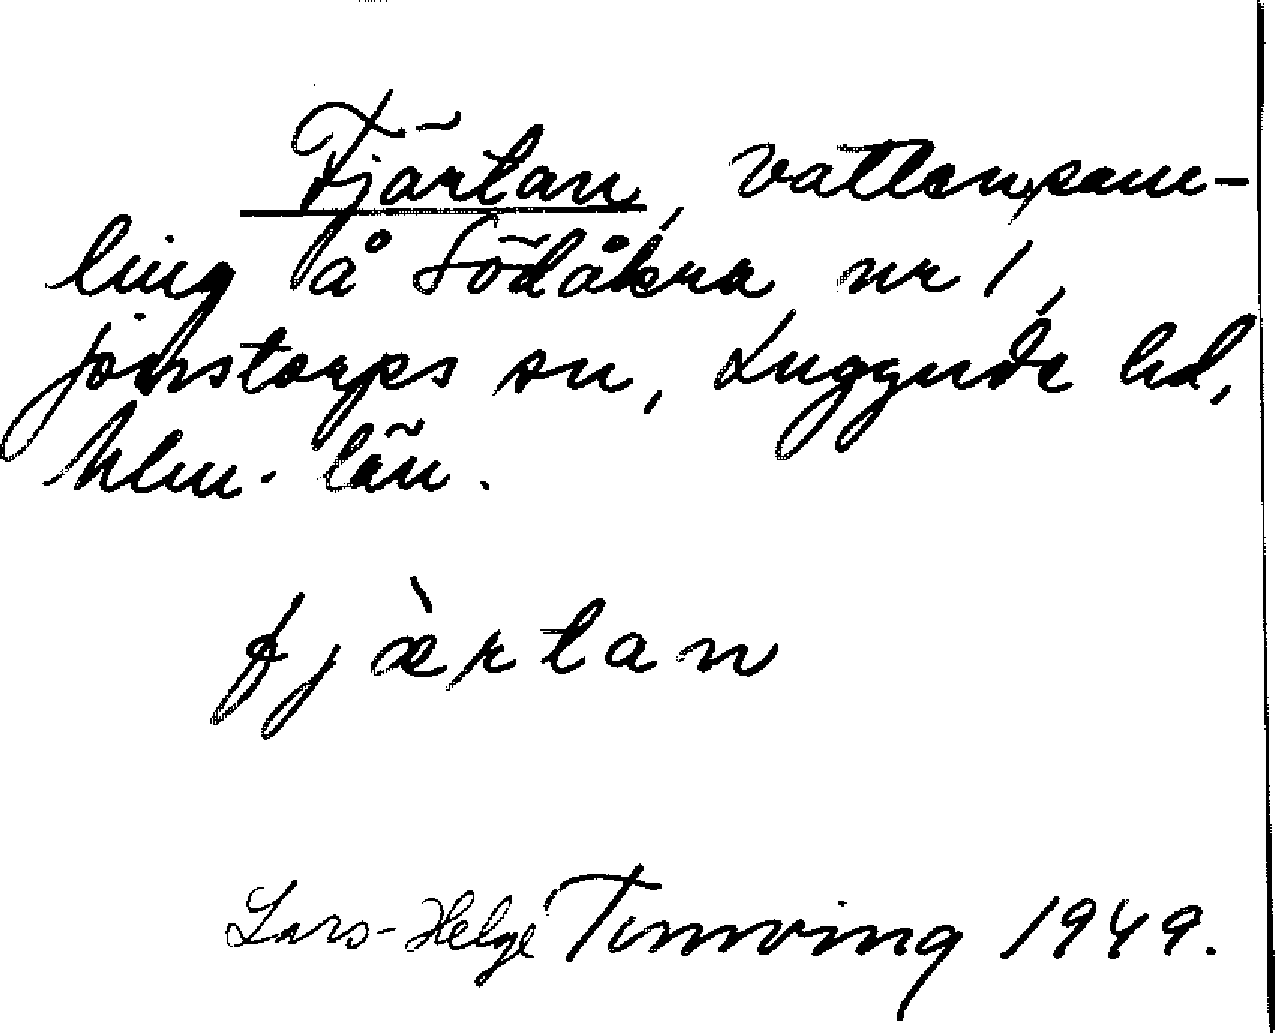 Fjärtan, vattensam-
ling å Södåkra nr 1,
Jonstorps sn, Luggude hd,
Mlm. län.
fjæ̀rtan
Lars-Helge Tunving 1949.